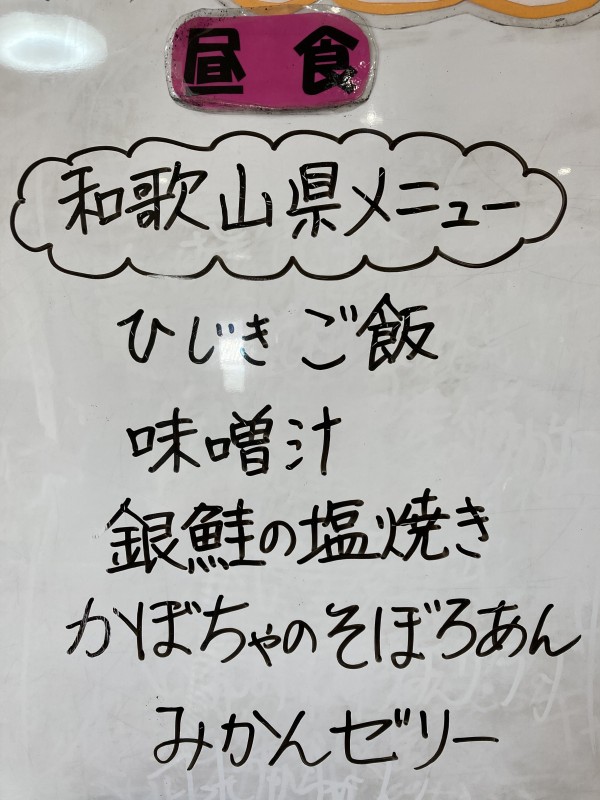 昼食
和歌山県メニュー
ひじきご飯
味噌汁
銀鮭の塩焼き
かぼちゃのそぼろあん
みかんゼリー